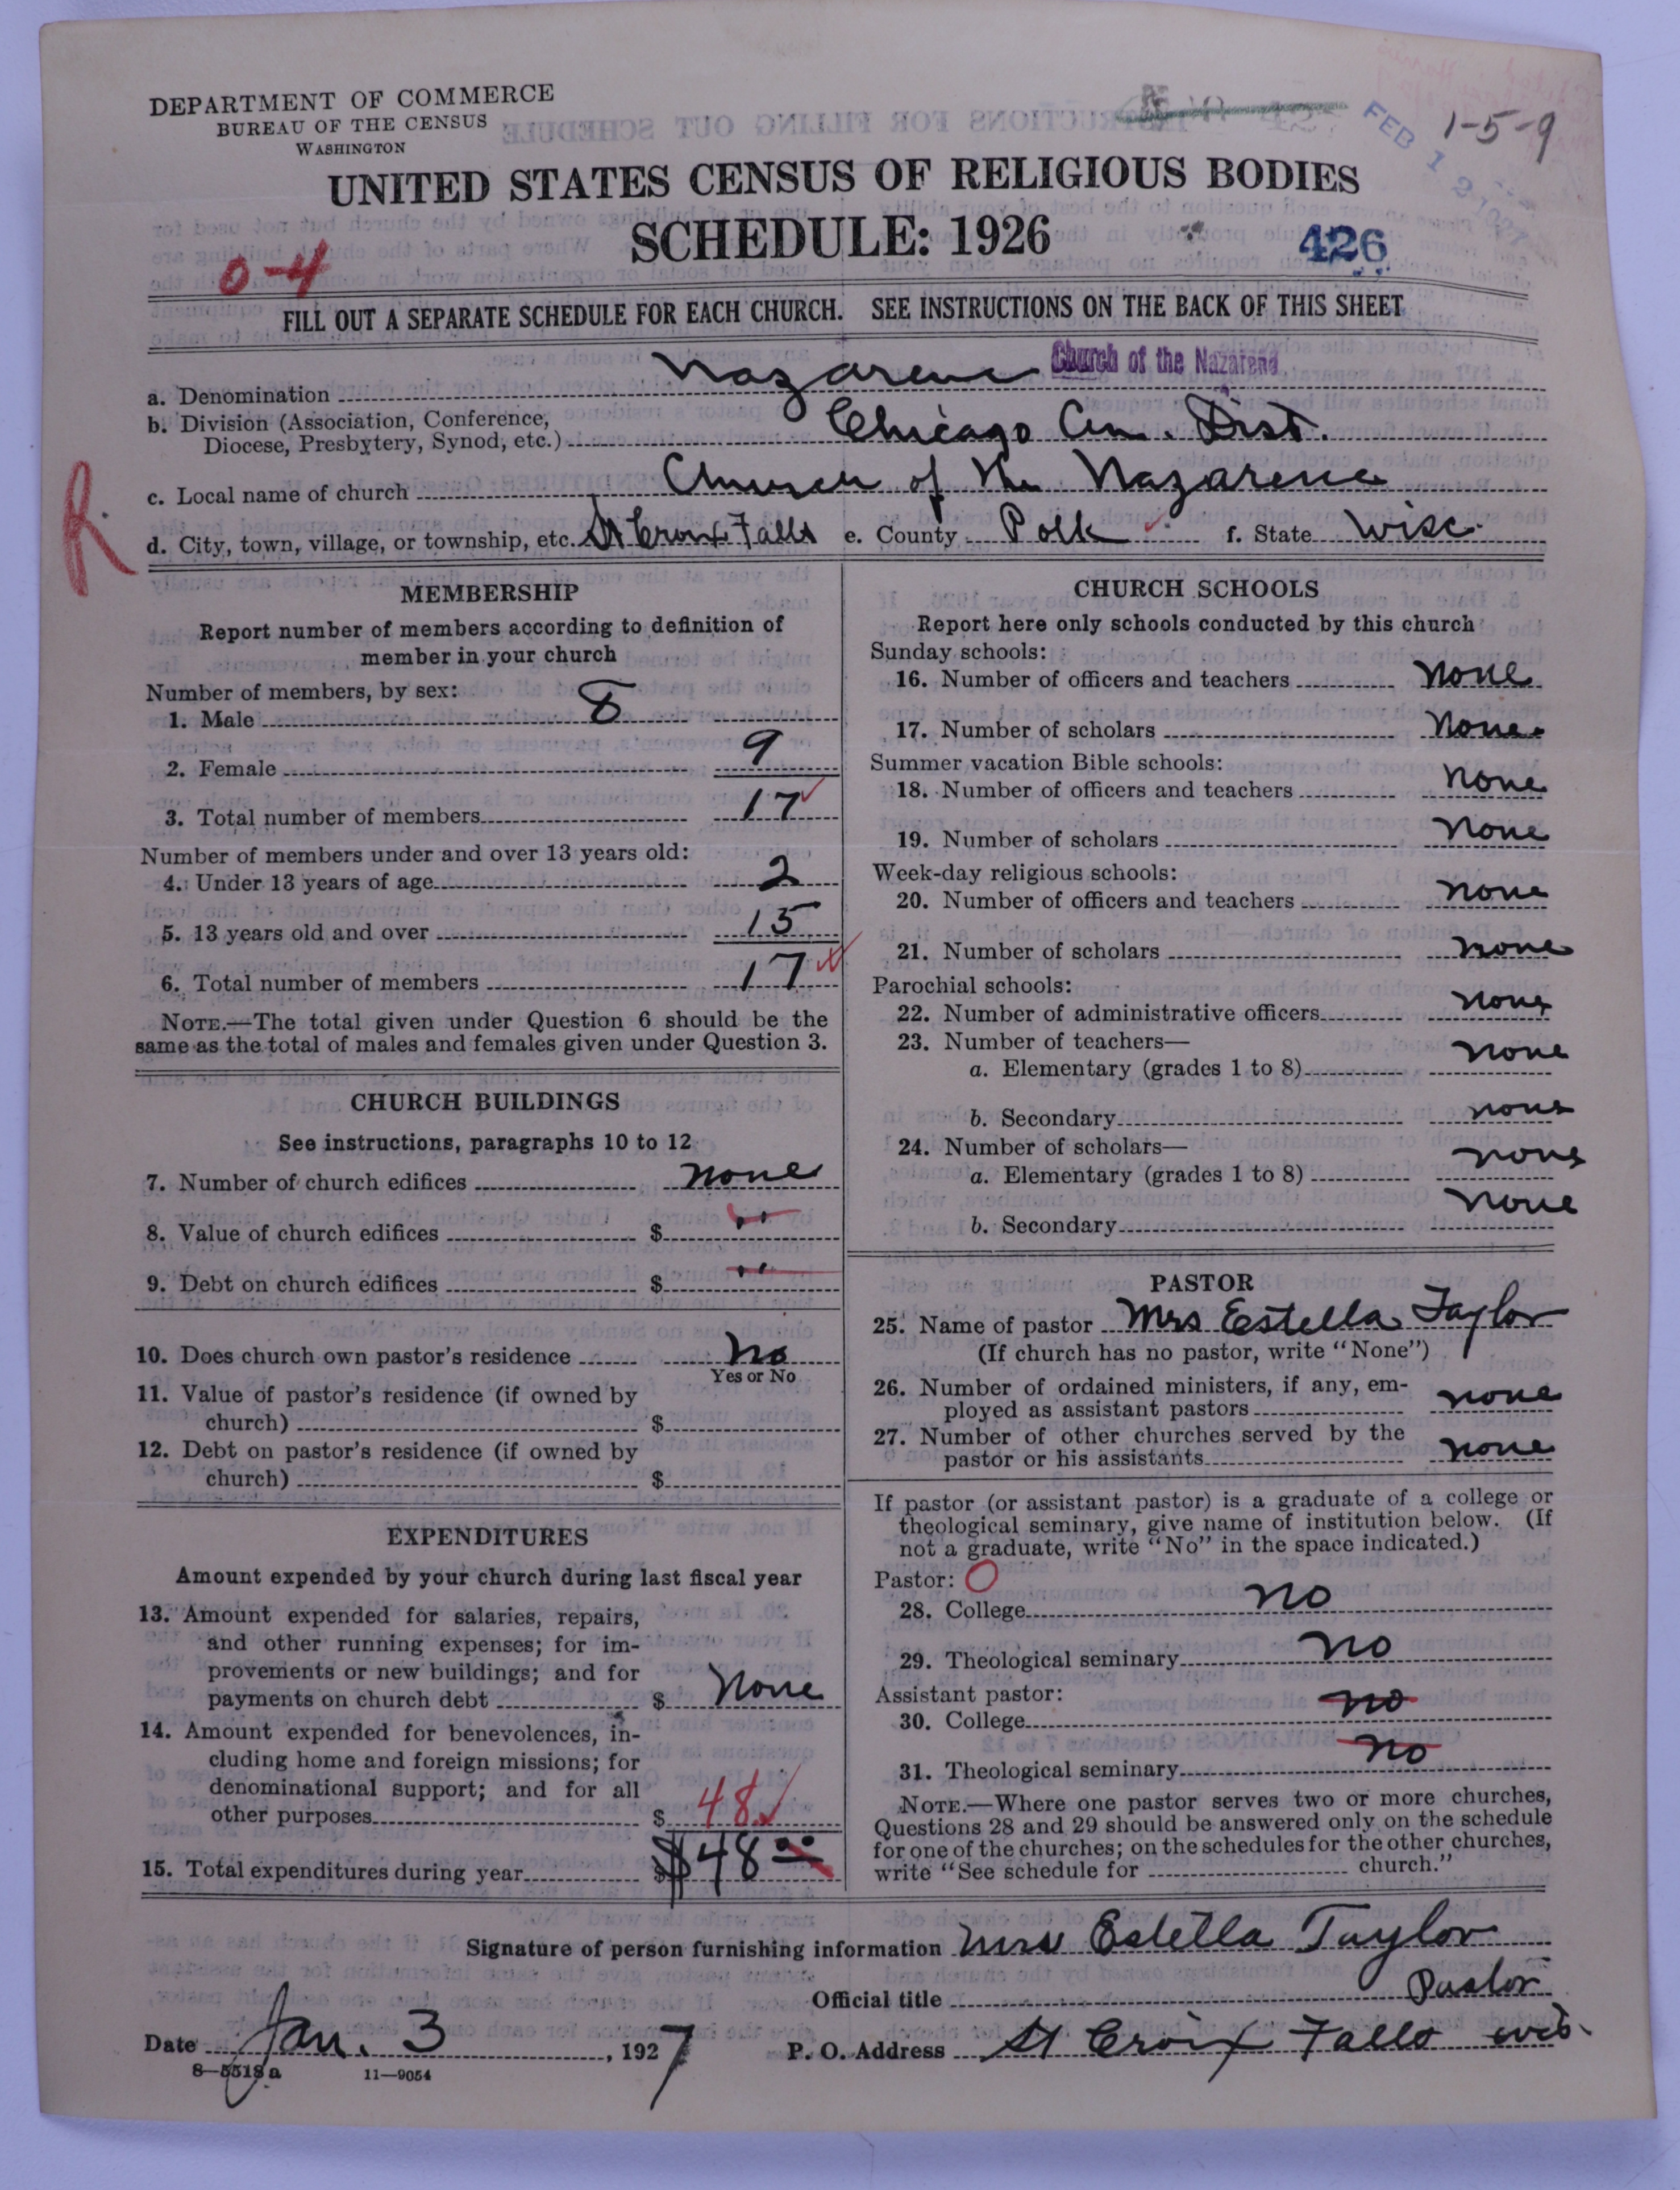 DEPARTMENT OF COMMERCE
BUREAU OF THE CENSUS
WASHINGTON
1-5-9
FEB 12 1927
UNITED STATES CENSUS OF RELIGIOUS BODIES
SCHEDULE: 1926
426
0-4
FILL OUT A SEPARATE SCHEDULE FOR EACH CHURCH. SEE INSTRUCTIONS ON THE BACK OF THIS SHEET
a. Denomination Nazarene Church of the Nazarene
b. Division (Association, Conference,
Diocese, Presbytery, Synod, etc.) Chicago Cen. Dist.
R.
c. Local name of church Church of the Nazarene
d. City, town, village, or township, etc. St Croix Falls e. County Polk f. State Wisc.
MEMBERSHIP
Report number of members according to definition of
member in your church
Number of members, by sex:
1. Male 8
2. Female 9
3. Total number of members 17
Number of members under and over 13 years old:
4. Under 13 years of age 2
5. 13 years old and over 15
6. Total number of members 17
NOTE.—The total given under Question 6 should be the
same as the total of males and females given under Question 3.
CHURCH BUILDINGS
See instructions, paragraphs 10 to 12
7. Number of church edifices none
8. Value of church edifices $ "
9. Debt on church edifices $ "
10. Does church own pastor's residence No
Yes or No
11. Value of pastor's residence (if owned by
church) $
12. Debt on pastor's residence (if owned by
church) $
EXPENDITURES
Amount expended by your church during last fiscal year
13. Amount expended for salaries, repairs,
and other running expenses; for im-
provements or new buildings; and for
payments on church debt $ None
14. Amount expended for benevolences, in-
cluding home and foreign missions; for
denominational support; and for all
other purposes $ 48
15. Total expenditures during year $ $48 00
CHURCH SCHOOLS
Report here only schools conducted by this church
Sunday schools:
16. Number of officers and teachers None
17. Number of scholars None
Summer vacation Bible schools:
18. Number of officers and teachers None
19. Number of scholars None
Week-day religious schools:
20. Number of officers and teachers none
21. Number of scholars none
Parochial schools:
22. Number of administrative officers none
23. Number of teachers—
a. Elementary (grades 1 to 8) none
b. Secondary none
24. Number of scholars—
a. Elementary (grades 1 to 8) none
b. Secondary none
PASTOR
25. Name of pastor Mrs Estella Taylor
(If church has no pastor, write "None")
26. Number of ordained ministers, if any, em-
ployed as assistant pastors none
27. Number of other churches served by the
pastor or his assistants none
If pastor (or assistant pastor) is a graduate of a college or
theological seminary, give name of institution below. (If
not a graduate, write "No" in the space indicated.)
Pastor: O
28. College no
29. Theological seminary no
Assistant pastor:
30. College no
31. Theological seminary no
NOTE.—Where one pastor serves two or more churches,
Questions 28 and 29 should be answered only on the schedule
for one of the churches; on the schedules for the other churches,
write "See schedule for church."
Signature of person furnishing information Mrs Estella Taylor
Official title Pastor
Date Jan. 3, 1927 P. O. Address St Croix Falls Wis.
8—5518a 11—9054